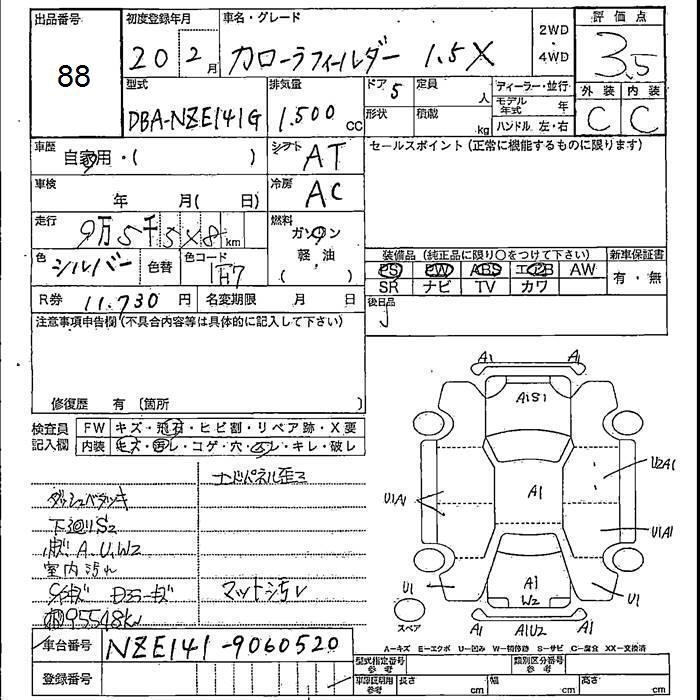 出品番号 初度登録年月 車名・グレード 2WD ・ 4WD 評価点
88 20 2月 カローラフィールダー 1.5X 3.5
外装 内装
C C
型式 排気量 ドア 5 定員 人 ディーラー・並行
DBA-NZE141G 1.500 cc 形状 積載 kg モデル年式 年
ハンドル 左・右
車歴 自家用・( ) シフト AT セールスポイント(正常に機能するものに限ります)
車検 年 月( 日) 冷房 AC
走行 9万5千5X8 km 燃料 ガソリン
軽油
( )
色 シルバー 色替 色コード 1H7
装備品(純正品に限り○をつけて下さい) 新車保証書
PS PW ABS エアB AW 有・無
SR ナビ TV カワ
R券 11.730 円 名変期限 月 日 後日品
注意事項申告欄(不具合内容等は具体的に記入して下さい)
修復歴 有 〔箇所 〕
検査員記入欄 FW キズ・飛石・ヒビ割・リペア跡・X要
内装 キズ・汚レ・コゲ・穴・スレ・キレ・破レ
下廻りS2
A.U.W2
室内汚れ
マット汚レ
95548k
A1 A1
A1S1
U2A1
A1
U1A1
U1A1
U1 A1 W2 U1
スペア A1 A1U2 A1
A-キズ E-エクボ U-凹み W-補修跡 S-サビ C-腐食 XX-交換済
車台番号 NZE141-9060520
登録番号
型式指定番号 参考 類別区分番号 参考
車庫証明用 参考 長さ cm 幅 cm 高さ cm